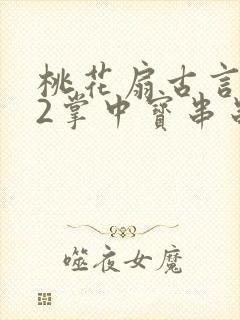 桃花扇古言
2掌中寶串
噬夜女魔